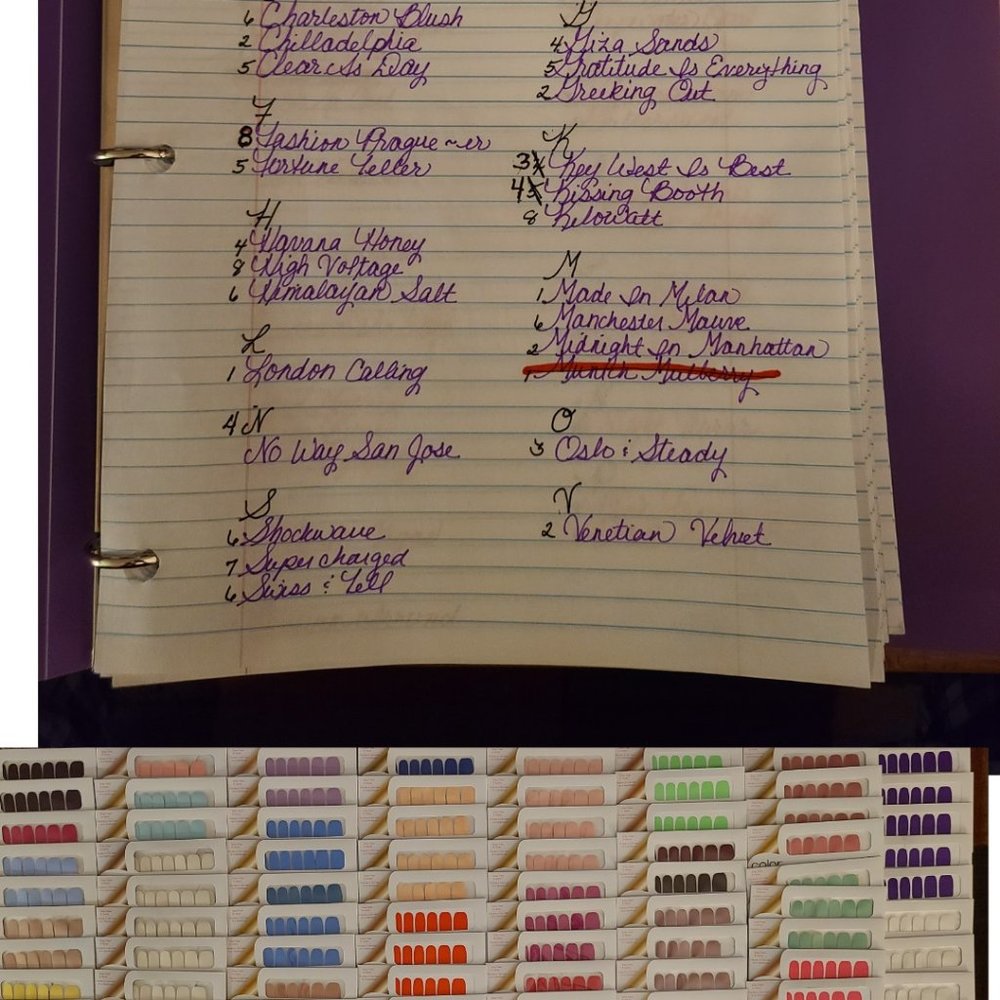 6 Charleston Blush
2 Chilladelphia
5 Clear As Day
F
8 Fashion Prague~er
5 Fortune Teller
H
4 Havana Honey
8 High Voltage
6 Himalayan Salt
L
1 London Calling
4 N
No Way San Jose
S
6 Shockwave
7 Supercharged
6 Swiss & Tell
G
4 Giza Sands
5 Gratitude Is Everything
2 Greeking Out
K
3 Key West Is Best
4 Kissing Booth
8 Kilowatt
M
1 Made In Milan
6 Manchester Mauve
2 Midnight In Manhattan
1 Munich Mulberry
O
3 Oslo & Steady
V
2 Venetian Velvet
color